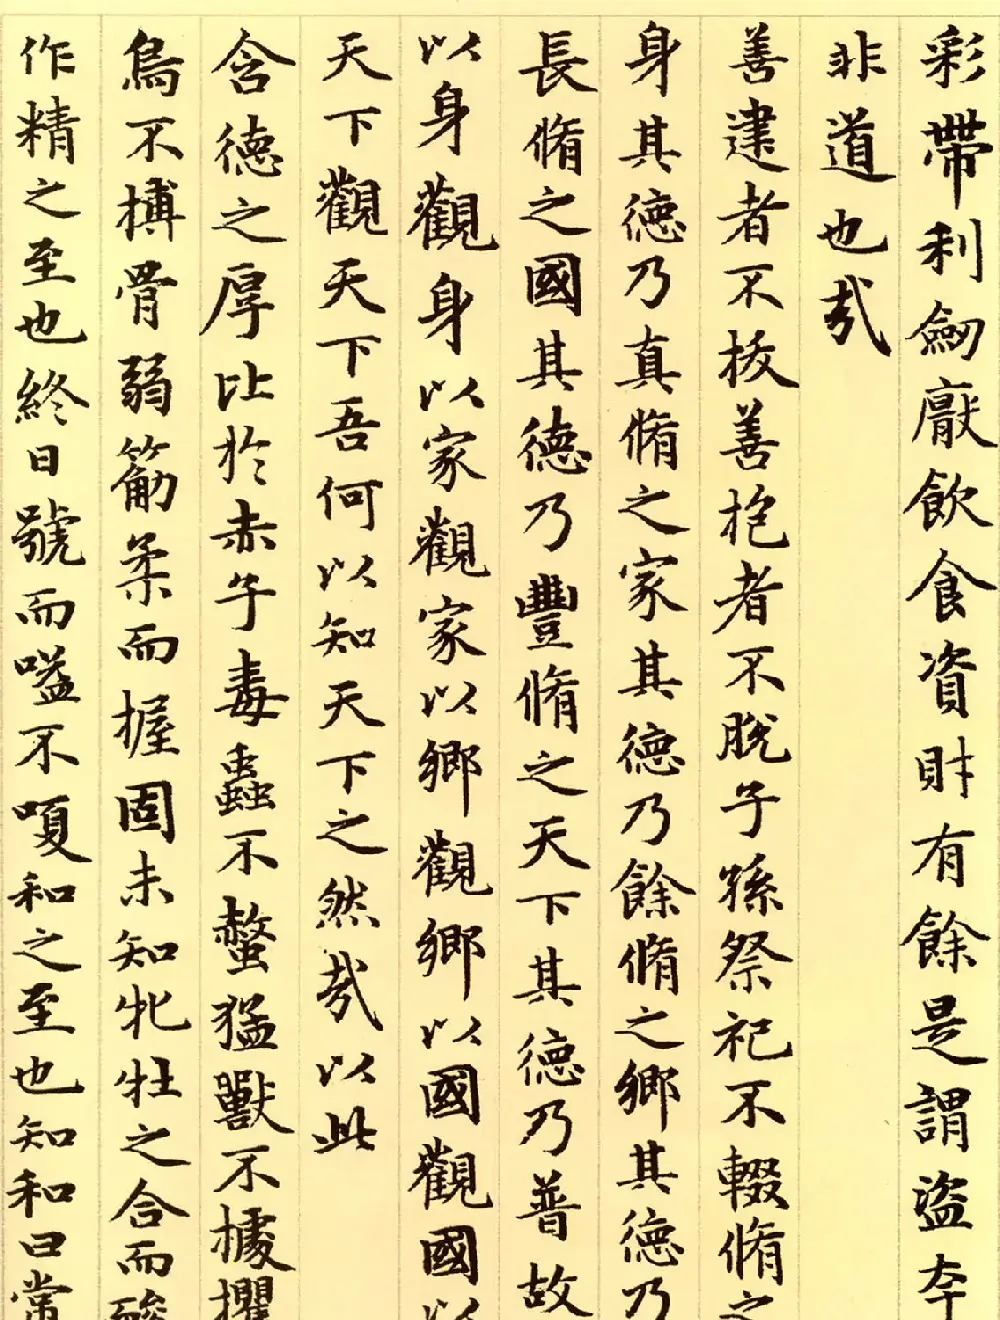 彩帶利劒厭飲食資財有餘是謂盜夸
非道也㢤
善建者不拔善抱者不脫子孫祭祀不輟脩之
身其德乃真脩之家其德乃餘脩之鄉其德乃
長脩之國其德乃豐脩之天下其德乃普故
以身觀身以家觀家以鄉觀鄉以國觀國以
天下觀天下吾何以知天下之然㢤以此
含德之厚比於赤子毒蟲不螫猛獸不據攫
鳥不搏骨弱筋柔而握固未知牝牡之合而酸
作精之至也終日號而嗌不嗄和之至也知和曰常